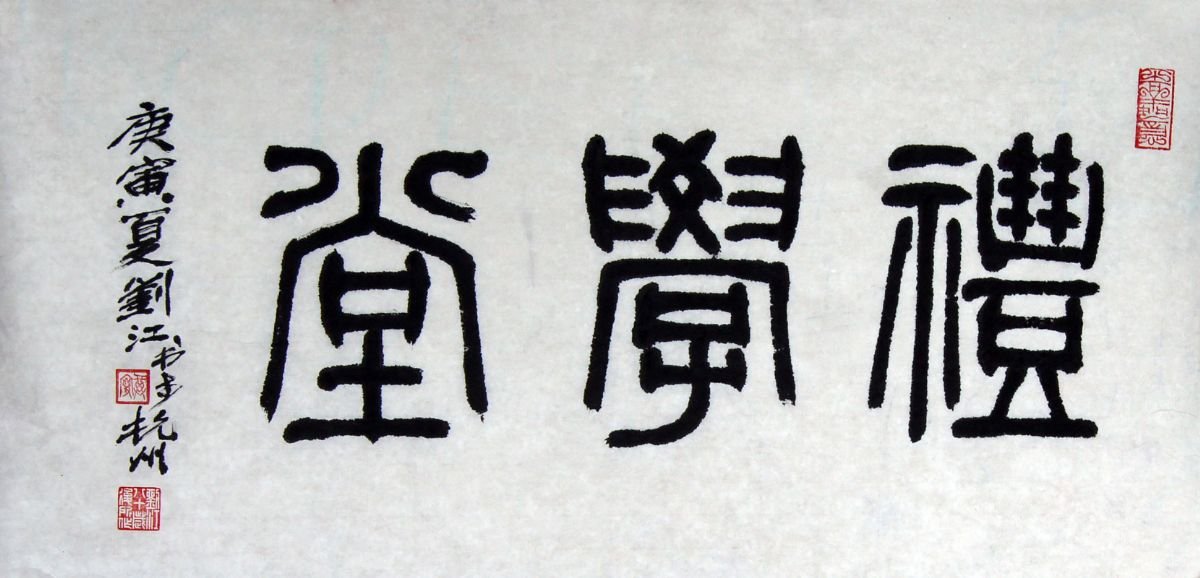 禮學堂
庚寅夏劉江书于杭州